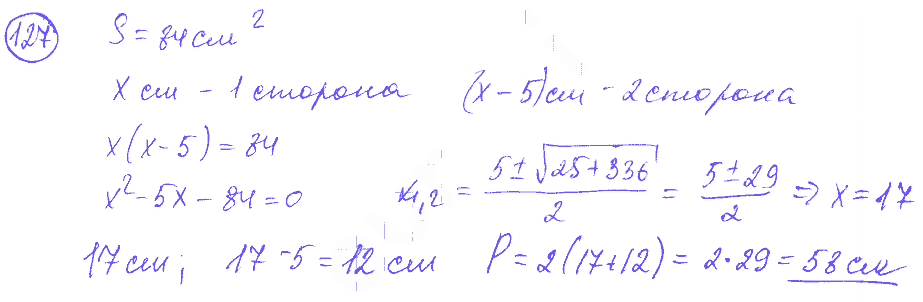 127 S = 84 см²
x см - 1 сторона (x - 5) см - 2 сторона
x(x - 5) = 84
x² - 5x - 84 = 0 x₁,₂ = (5 ± √(25 + 336))/2 = (5 ± 29)/2 ⇒ x = 17
17 см; 17 - 5 = 12 см P = 2(17 + 12) = 2 · 29 = 58 см